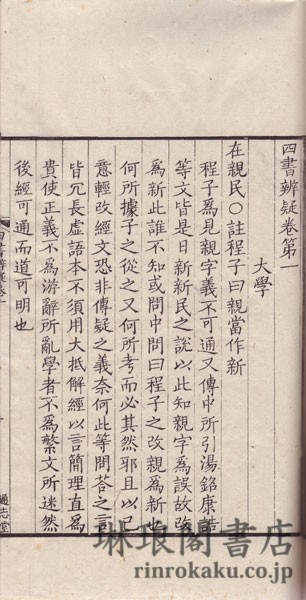 四書辨疑卷第一
大學
在親民○註程子曰親當作新
程子為見親字義不可通又傳中所引湯銘康誥
等文皆是日新新民之說以此知親字為誤故改
為新此誰不知或問中問曰程子之改親為新也
何所據子之從之又何所考而必其然邪且以己
意輕改經文恐非傳疑之義奈何此等問荅之言
皆冗長虛語本不須用大抵解經以言簡理直為
貴使正義不為游辭所亂學者不為繁文所迷然
後經可通而道可明也
通志堂
琳琅閣書店
rinrokaku.co.jp